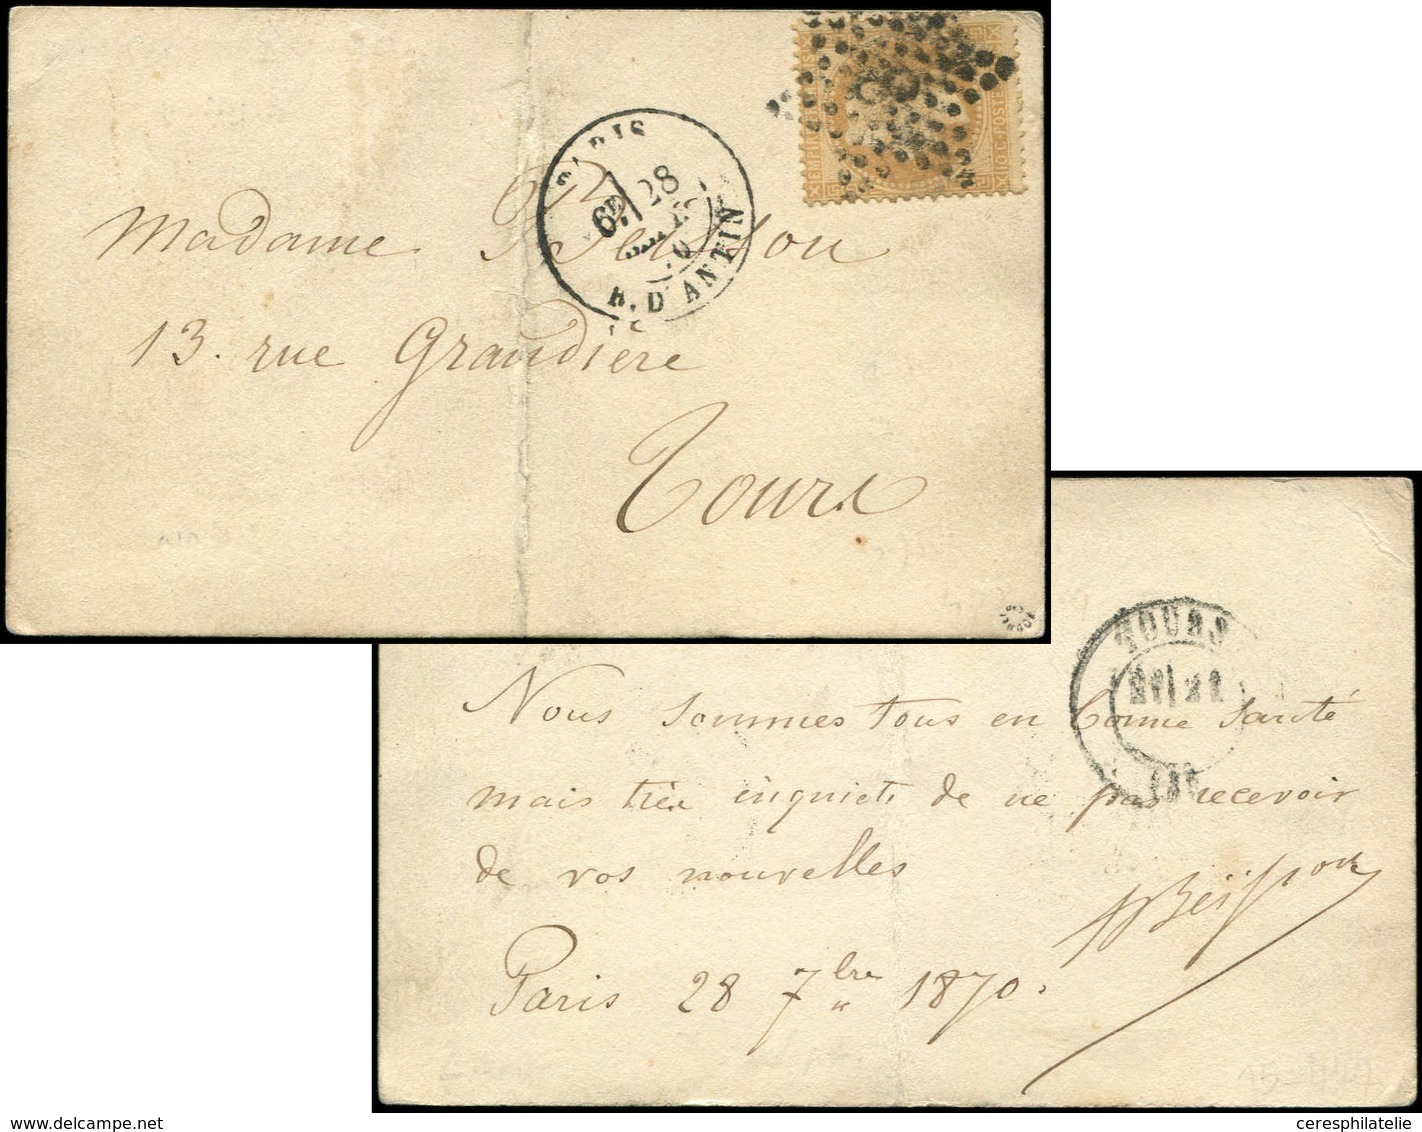 Madame Beisson
13. rue Grandière
Tours
PARIS
6E 28
SEPT.
70
R. D'ANTIN
10 C. POSTES
Nous sommes tous en bonne santé
mais très inquiets de ne pas recevoir
de vos nouvelles
Beisson
Paris 28 7bre 1870.
TOURS
ceresphilatelie